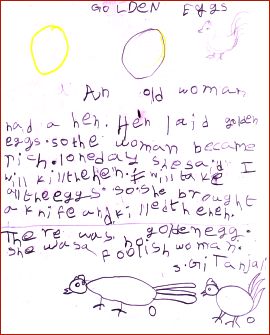 GOLDEN Eggs
An old woman
had a hen. Hen laid golden
eggs. so the woman became
rich. One day she said I
will kill the hen. I will take
all the eggs. so she brought
a knife and killed the heh.
There was no golden egg.
she was a foolish woman.
S. Gitanjal